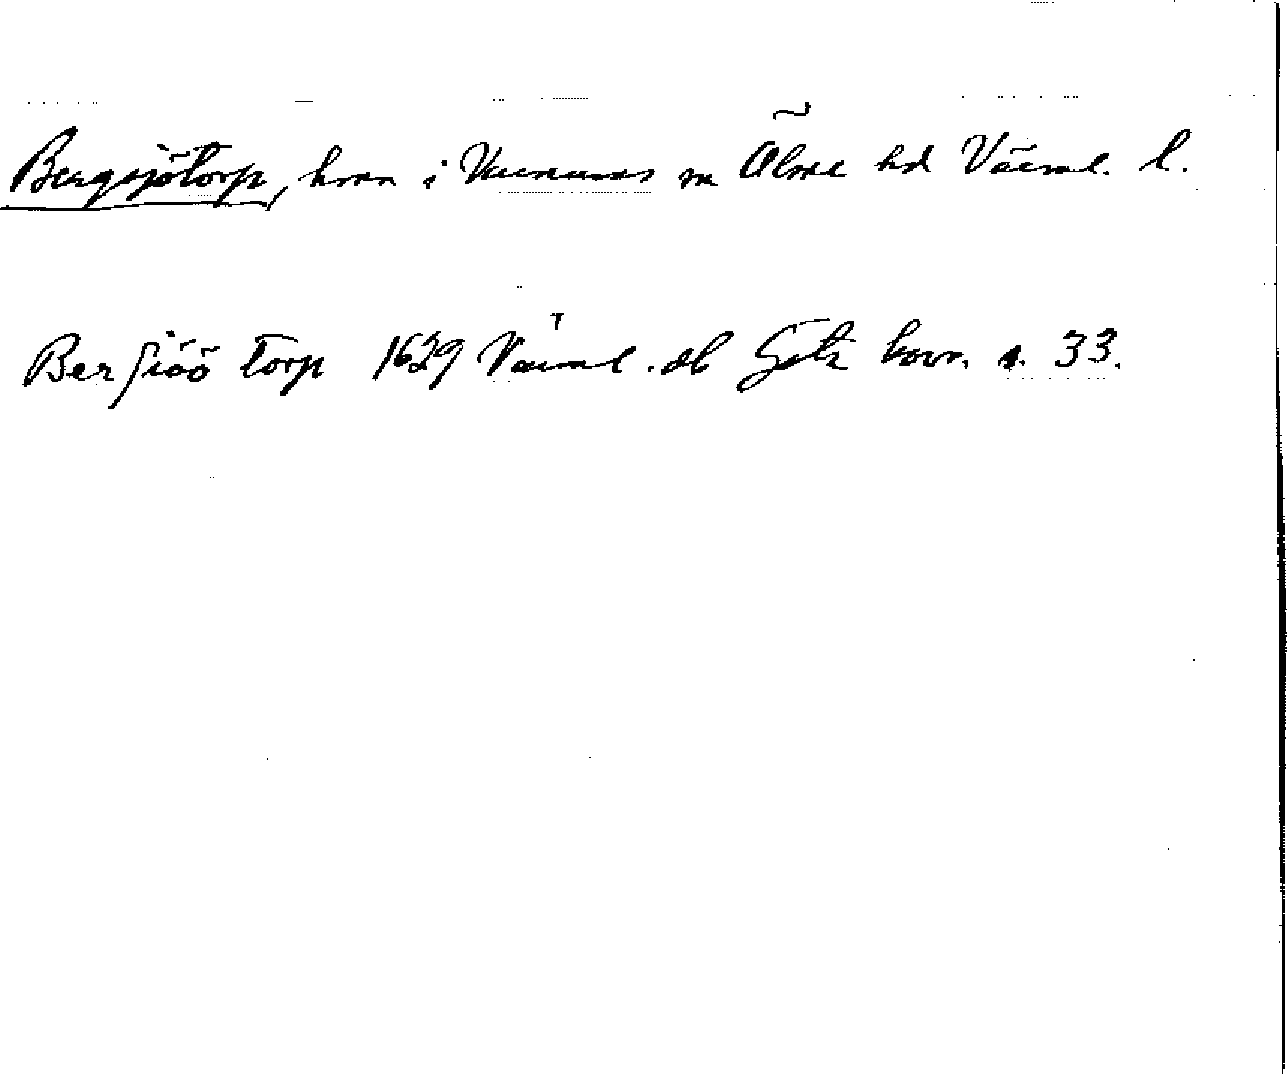 Bergsjötorp, hmn i Varnums sn Ölme hd Värml. l.
Berſiöö torp 1629 Värml. db Götz kovr. s. 33.